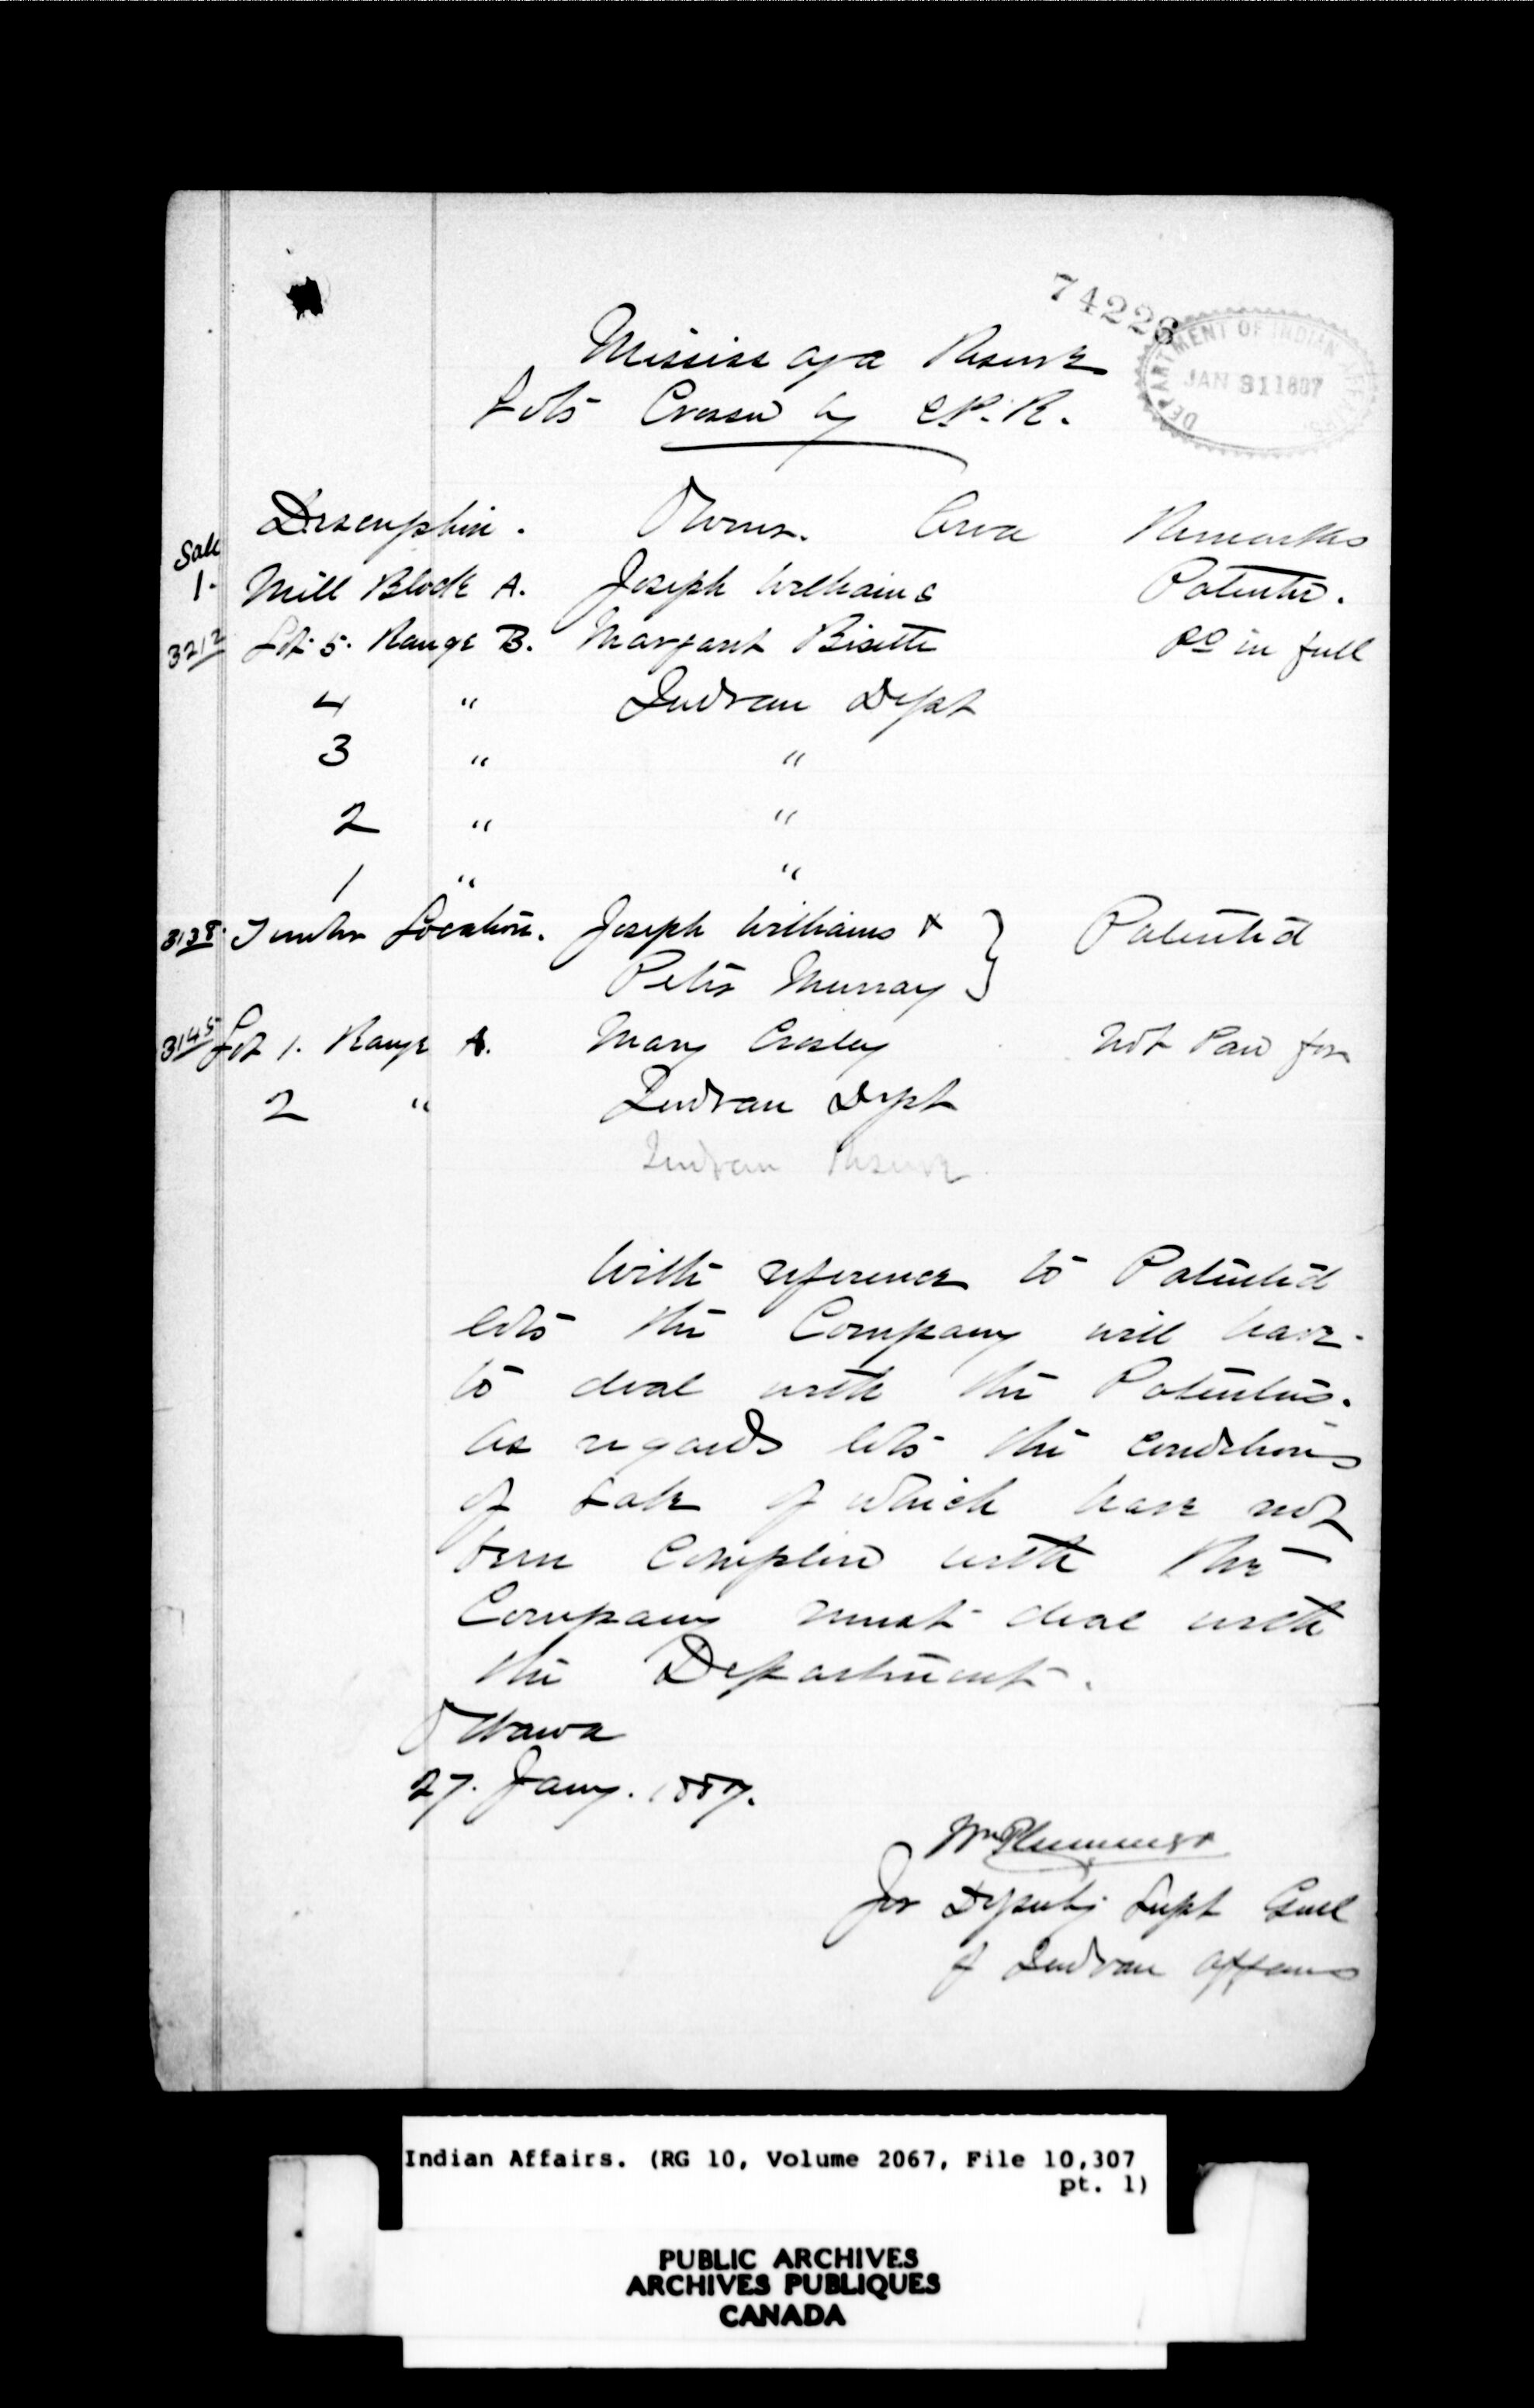 74226
DEPARTMENT OF INDIAN AFFAIRS.
JAN 31 1887
Mississaga Reserve
Lots Crossed by C.P.R.
Sale Description. Owner. Area Remarks
1. Mill Block A. Joseph Williams Patented.
3212 Lot 5. Range B. Margaret Bisette Pd in full
4 " Indian Dept
3 " "
2 " "
1 " "
3138 Timber Location. Joseph Williams & } Patented
Peter Murray
3145 Lot 1. Range A. Mary Crosley Not Paid for
2 " Indian Dept
Indian Reserve
With reference to Patented
lots the Company will have
to deal with the Patentees.
As regards lots the conditions
of sale of which have not
been complied with the
Company must deal with
the Department.
Ottawa
27. Jany. 1887.
Wm Plummer
for Deputy Supt Genl
of Indian Affairs
Indian Affairs. (RG 10, Volume 2067, File 10,307
pt. 1)
PUBLIC ARCHIVES
ARCHIVES PUBLIQUES
CANADA